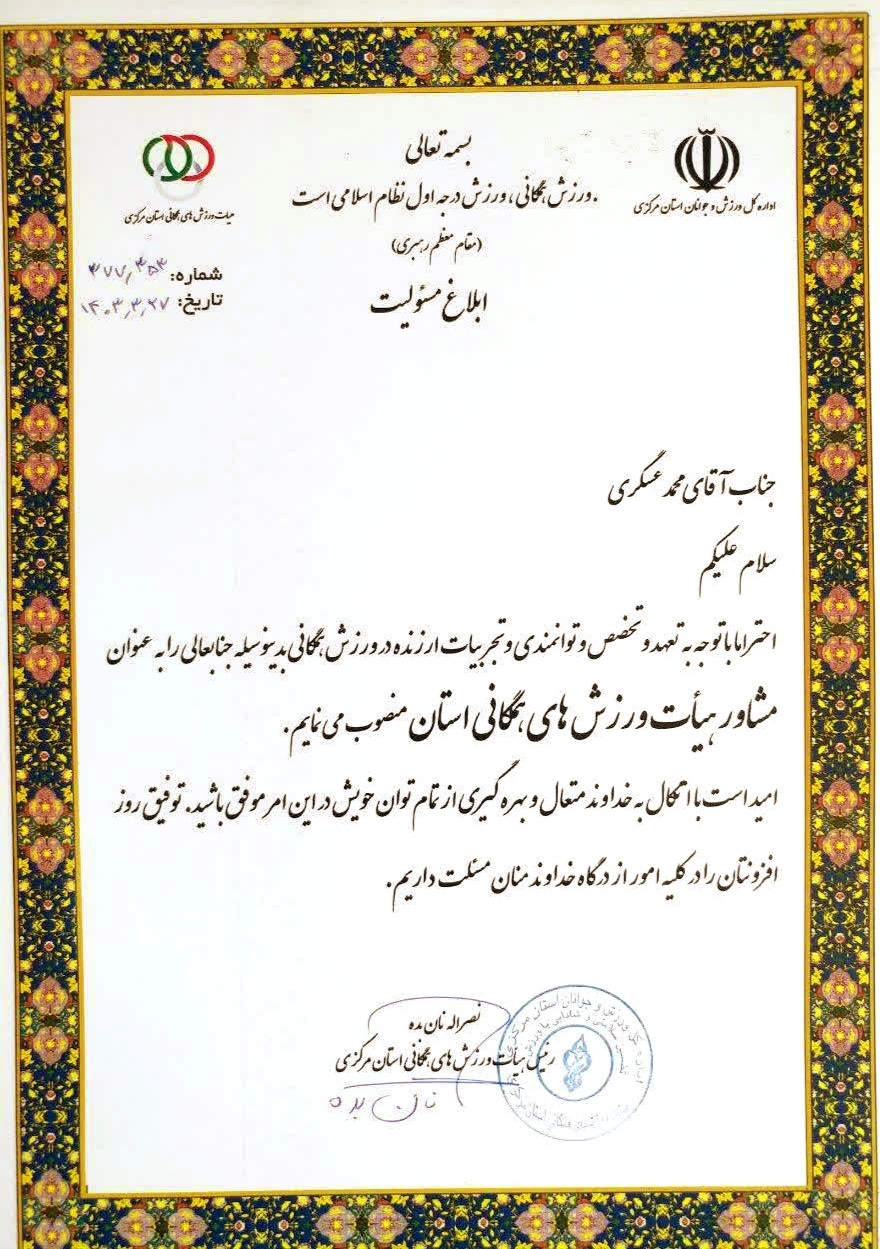 بسمه تعالی
ورزش همگانی، ورزش درجه اول نظام اسلامی است.
(مقام معظم رهبری)
ابلاغ مسئولیت
اداره کل ورزش و جوانان استان مرکزی
هیات ورزش های همگانی استان مرکزی
شماره: ۳۷۷٫۳۵۳
تاریخ: ۱۴۰۳٫۳٫۲۷
جناب آقای محمد عسگری
سلام علیکم
احتراما با توجه به تعهد و تخصص و توانمندی و تجربیات ارزنده در ورزش همگانی بدینوسیله جنابعالی را به عنوان
مشاور هیأت ورزش های همگانی استان منصوب می نمایم.
امید است با اتکال به خداوند متعال و بهره گیری از تمام توان خویش در این امر موفق باشید. توفیق روز
افزونتان را در کلیه امور از درگاه خداوند منان مسئلت داریم.
نصراله نان بده
رئیس هیأت ورزش های همگانی استان مرکزی
نان بده
اداره کل ورزش و جوانان استان مرکزی